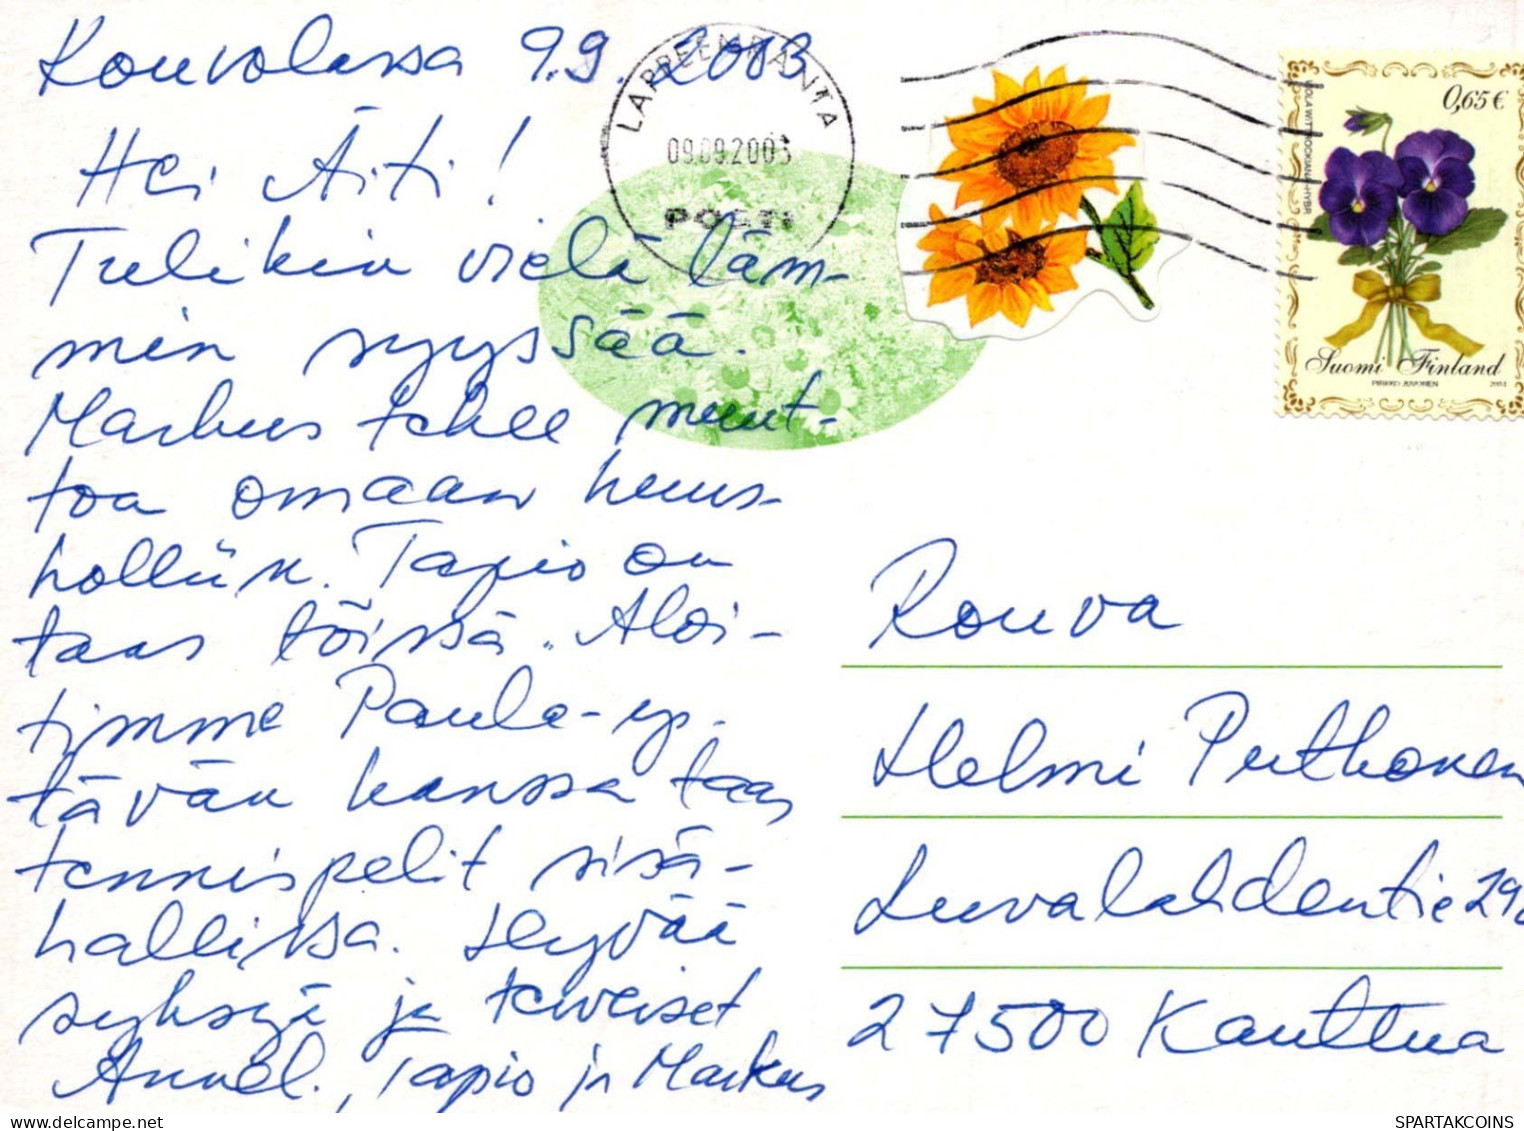 Kouvolassa 9.9. 2003
Hei Äiti!
Tulikin vielä läm-
min syyssää.
Markus tekee muut-
toa omaan huus-
holliin. Tapio on
taas töissä. Aloi-
timme Paula-ys-
tävän kanssa taas
tennispelit sisä-
hallissa. Hyvää
syksyä ja terveiset
Anneli, Tapio ja Markus
LAPPEENRANTA
09.09.2003
POSTI
0,65 €
VIOLA WITTROCKIANA-HYBR
Suomi Finland
PIRKKO JUVONEN
Rouva
Helmi Puthonen
Luvalahdentie 29
27500 Kauttua
SPARTAKCOINS